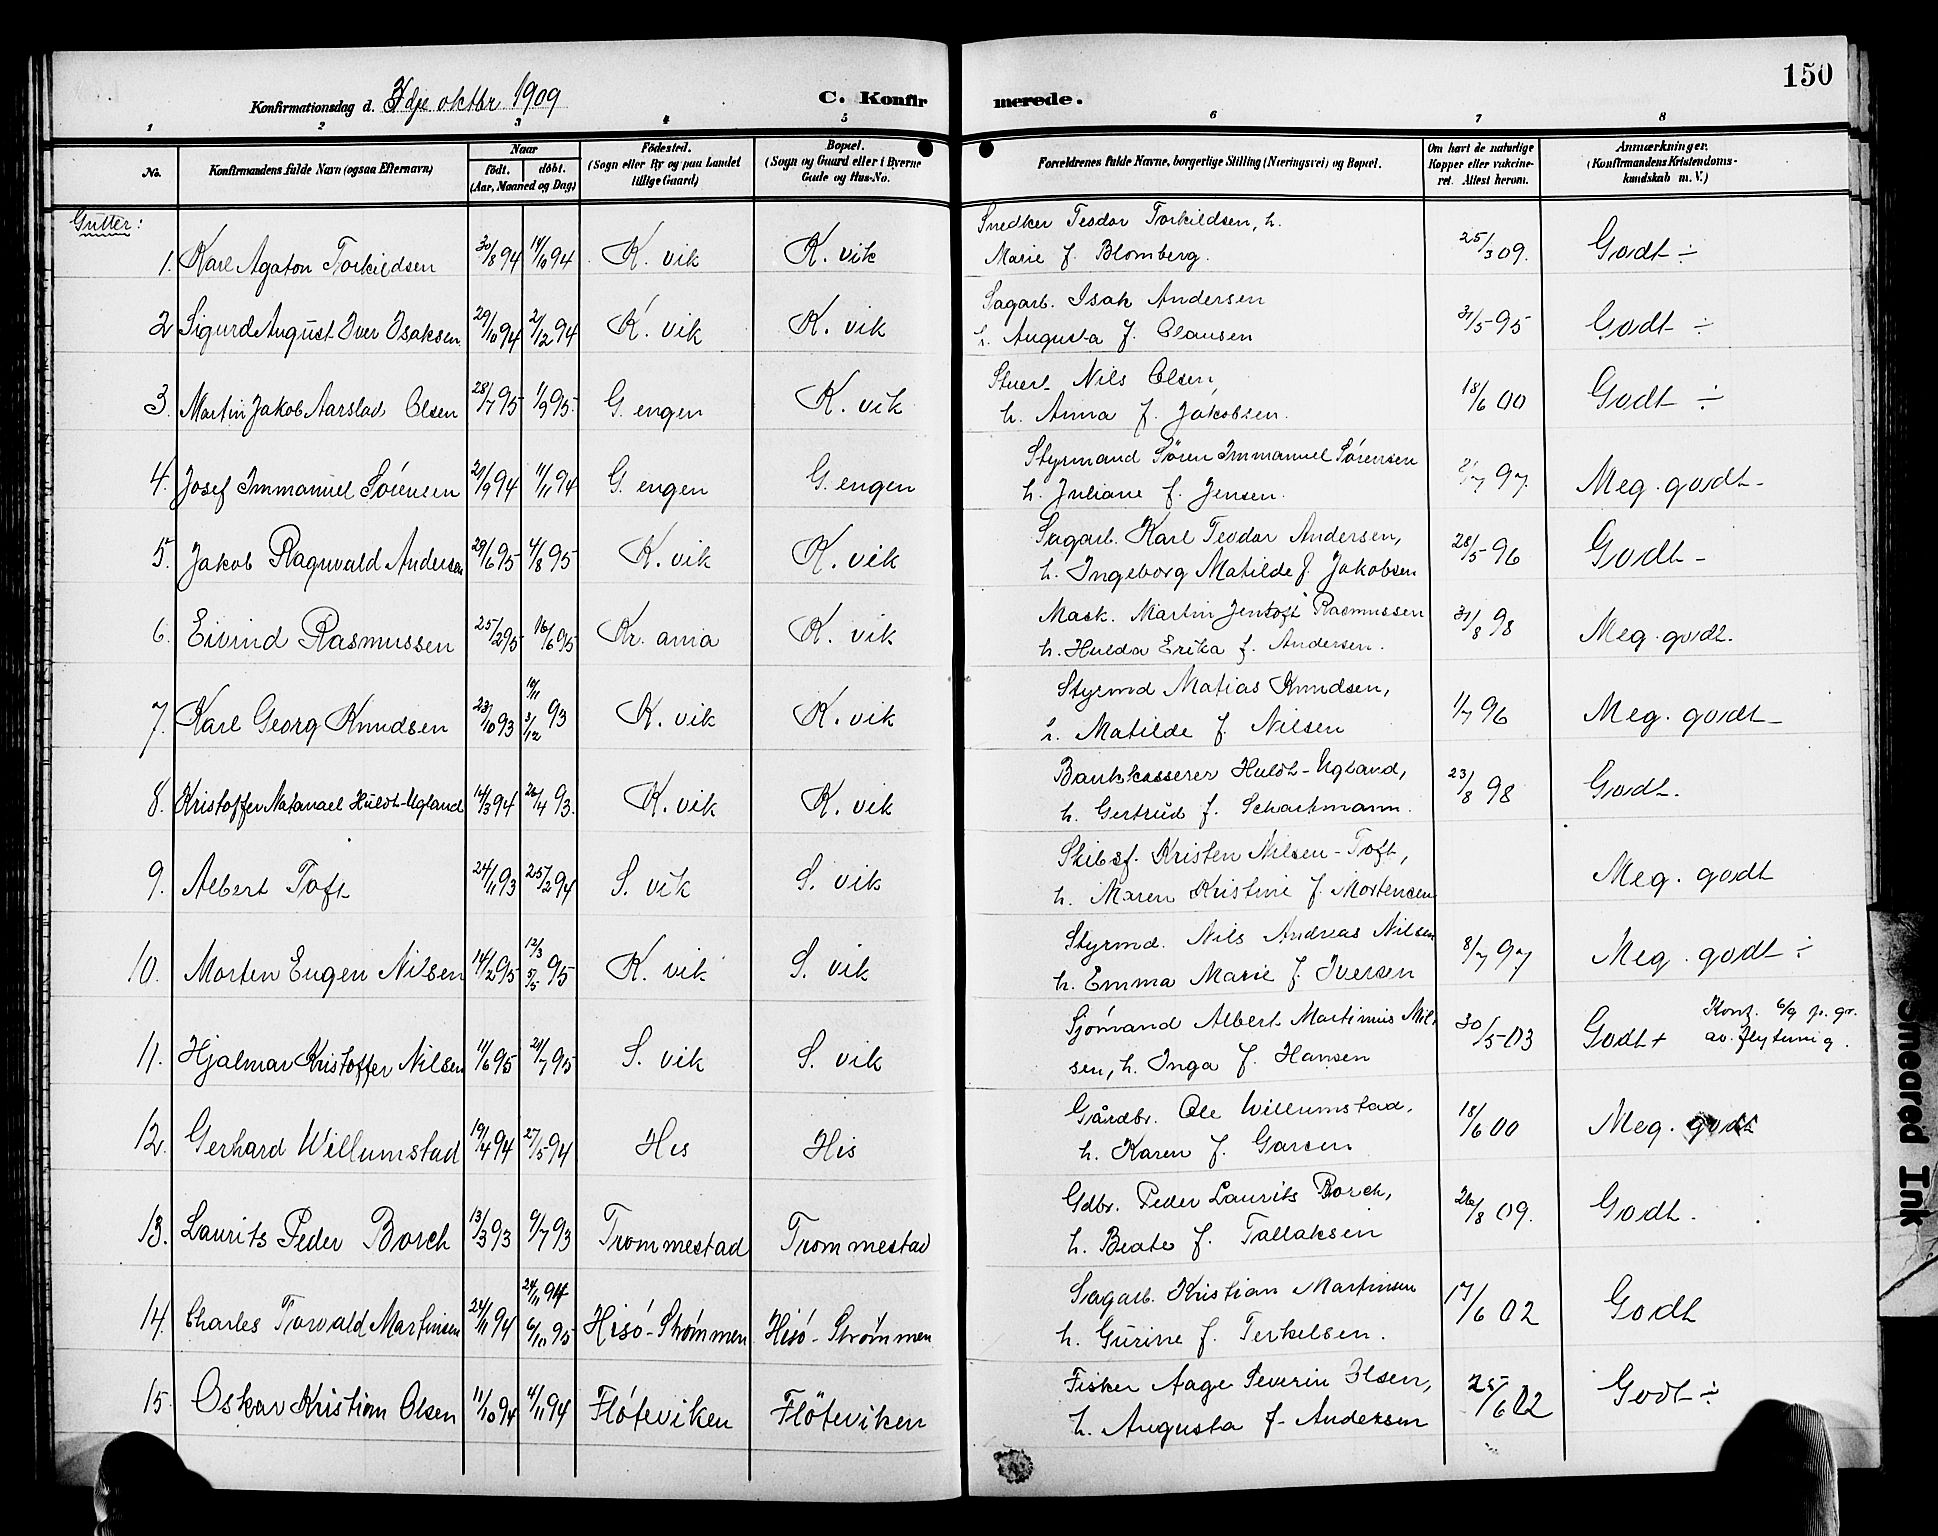 Konfirmationsdag d. 3dje oktbr 1909
C. Konfirmerede.
150
1 2 3 4 5 6 7 8
No.
Konfirmandens fulde Navn (ogsaa Efternavn)
Naar
födt. döbt.
(Aar, Maaned og Dag)
Födested.
(Sogn eller By og paa Landet
tillige Gaard)
Bopæl.
(Sogn og Gaard eller i Byerne
Gade og Hus-No.
Forældrenes fulde Navne, borgerlige Stilling (Næringsvei) og Bopæl.
Om havt de naturlige
Kopper eller vakcine-
ret. Attest herom.
Anmærkninger.
(Konfirmandens Kristendoms-
kundskab m. V.)
Gutter:
Snedker Teodor Torkildsen, h.
1. Karl Agaton Torkildsen 30/8 94 14/10 94 K. vik K. vik Marie f. Blomberg. 25/3 09. Godt ÷
Sagarb. Isak Andersen
2 Sigurd August Iver Isaksen 29/10 94 2/12 94 K. vik K. vik h. Augusta f. Clausen 31/5 95 Godt ÷
Stuert Nils Olsen,
3. Martin Jakob Aarslad Olsen 28/7 95 1/9 95. G. engen K. vik h. Anna f. Jakobsen. 18/6 00 Godt ÷
Styrmand Sören Immanuel Sörensen
4. Josef Immanuel Sörensen 27/9 94 11/11 94 G. engen G. engen h. Juliane f. Jensen. /7 97. Meg. godt
Sagarb. Karl Teodor Andersen,
5. Jakob Ragnvald Andersen 29/6 95 4/8 95 K. vik K. vik h. Ingeborg Matilde f. Jakobsen 28/5 96 Godt
Mask. Martin Jentoft Rasmussen
6. Eivind Rasmussen 25/2 95 16/6 95 Kr. ania K. vik h. Hulda Erika f. Andersen. 31/8 98 Meg. godt.
Styrmd Matias Knudsen,
7. Karl Georg Knudsen 23/10 93 18/11 3/12 93 K. vik K. vik h. Matilde f. Nilsen 1/7 96 Meg. godt
Bankkasserer Huldt-Ugland,
8. Kristoffer Natanael Huldt-Ugland 14/3 94 26/4 93. K. vik K. vik h. Gertrud f. Schartmann. 23/8 98 Godt.
Skibsf. Kristen Nilsen-Toft,
9. Albert Toft 24/11 93 25/2 94 S. vik S. vik h. Maren Kristine f. Mortensen Meg. godt
Styrmd. Nils Andreas Nilsen
10. Morten Eugen Nilsen 14/2 95 12/3 5/5 95 K. vik S. vik h. Emma Marie f. Iversen 8/7 97 Meg. godt ÷
Sjömand Albert Martinius Nil-
11. Hjalmar Kristoffer Nilsen 11/6 95 21/7 95 S. vik S. vik sen, h. Inga f. Hansen 30/5 03 Godt + Konf. 6/9 p. gr.
av. flytning.
Gårdbr. Ole Willumstad,
12. Gerhard Willumstad 19/4 94 27/5 94 His His h. Karen f. Garsen 18/6 00 Meg. godt
Gdbr. Peder Laurits Borch,
13. Laurits Peder Borch 13/3 93 9/7 93 Trommestad Trommestad h. Beate f. Tallaksen 26/8 09. Godt.
Sagarb. Kristian Martinsen
14. Charles Torvald Martinsen 24/11 94 24/11 94 6/10 95 Hisö-Strömmen Hisö-Strömmen h. Gurine f. Terkelsen. 17/6 02 Godt
Fisker Aage Severin Olsen,
15. Oskar Kristian Olsen 11/10 94 4/11 94 Flöteviken Flöteviken h. Augusta f. Andersen 25/6 02 Godt ÷
Smeared Ink